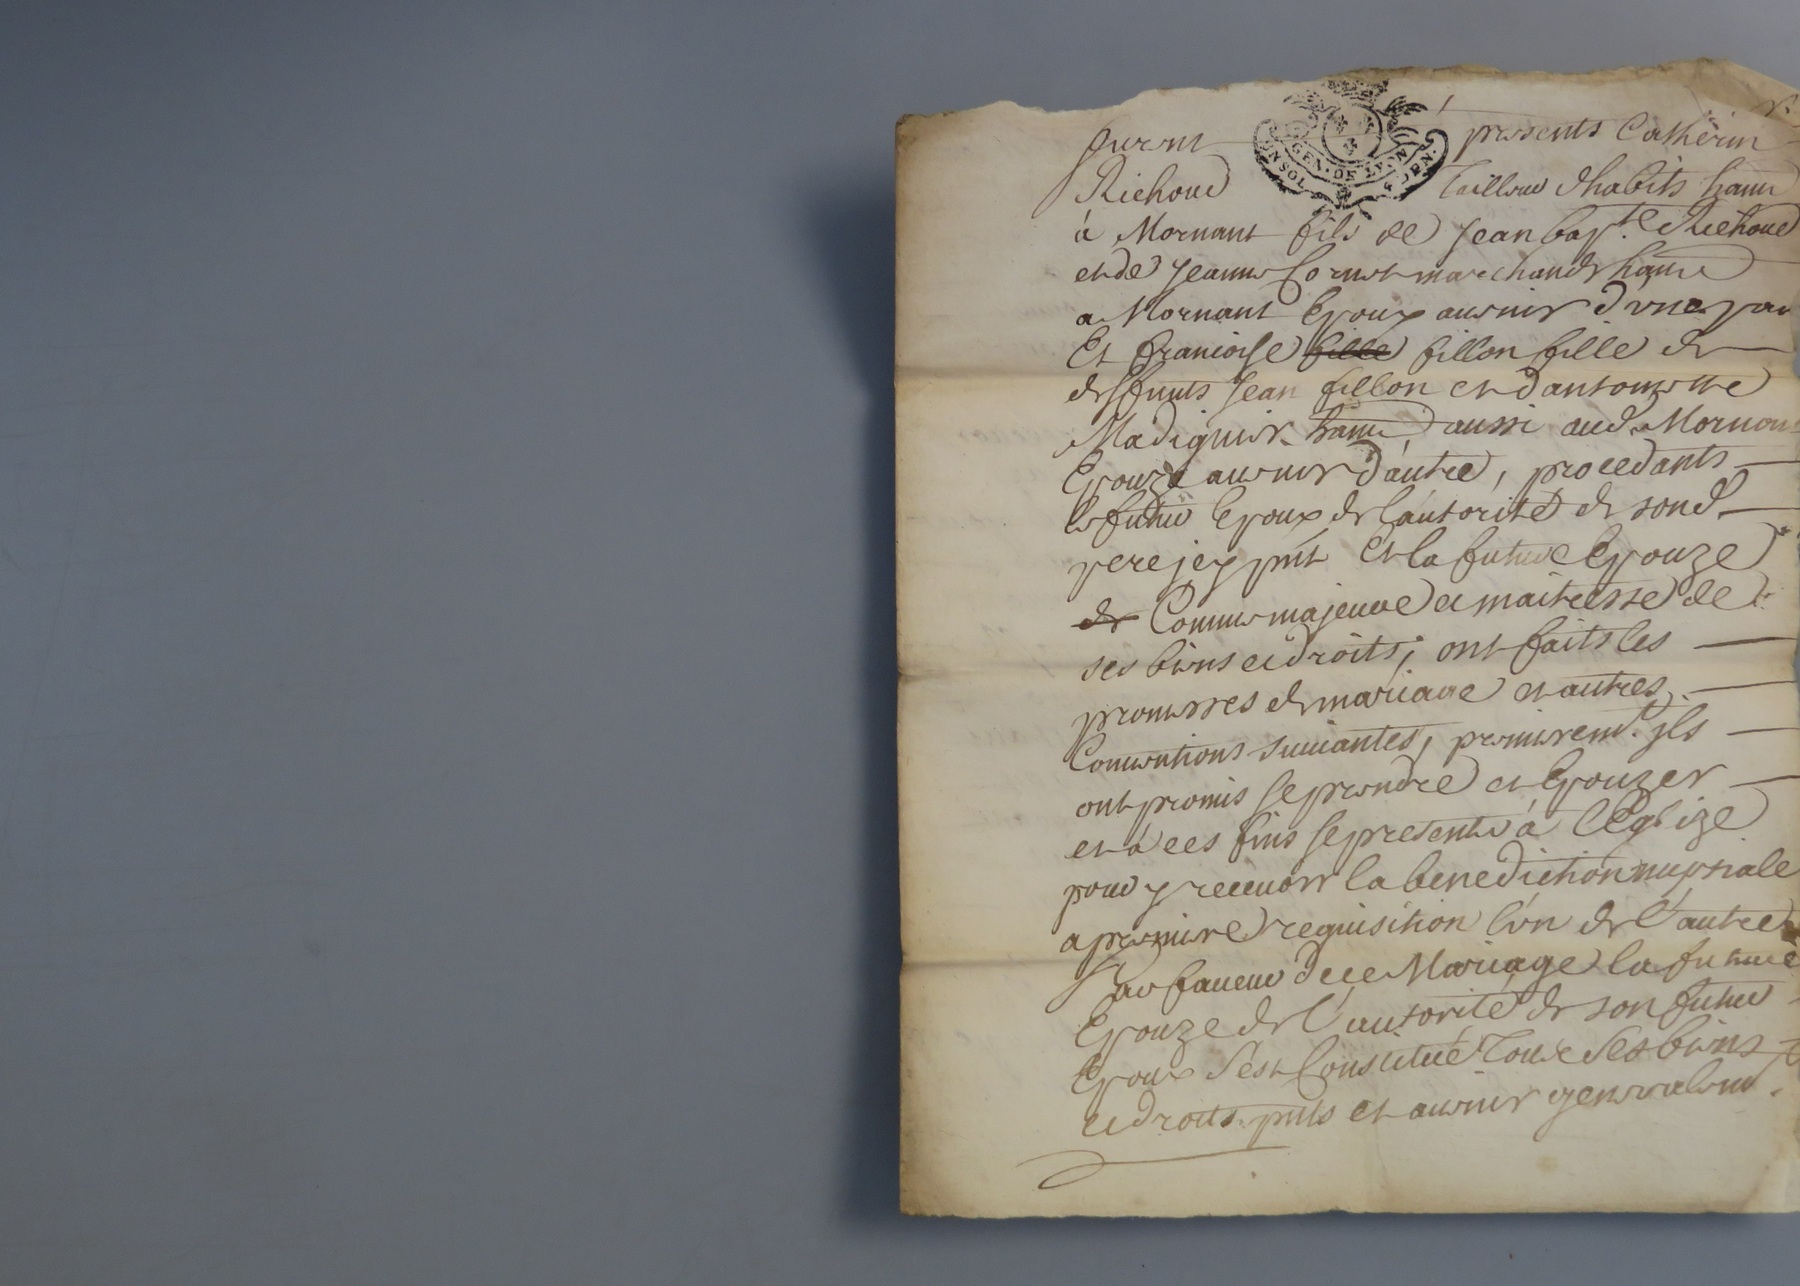 furent presents Catherin
GEN. DE LYON
Richoud Tailleur dhabits hant
à Mornant fils de Jean bapte Richoud
et de Jeanne Cornet marchands hants
a Mornant Epoux auenir d'vne part
Et francoise fille fillon fille de
deffunts Jean fillon et dantoinette
Madignier hante aussi aud Mornant
Epouze auenir d'autre, procedants
le futur Epoux de l'autorité de sond
pere jcy pnt Et la future Epouze
de Comme majeure et maitresse de
ses biens et droits, ont faits les
promesses de mariage et autres
Conuentions suiuantes, premierent jls
ont promis se prendre et Epouzer
et à ces fins se presenter à l'Eglize
pour y receuoir la benediction nuptiale
a premiere requisition l'vn de l'autre
En faueur de ce Mariage la future
Epouze de l'autorité de son futur
Epoux s'est Constitué Tous ses biens
et droits pnts et auenir generalemt